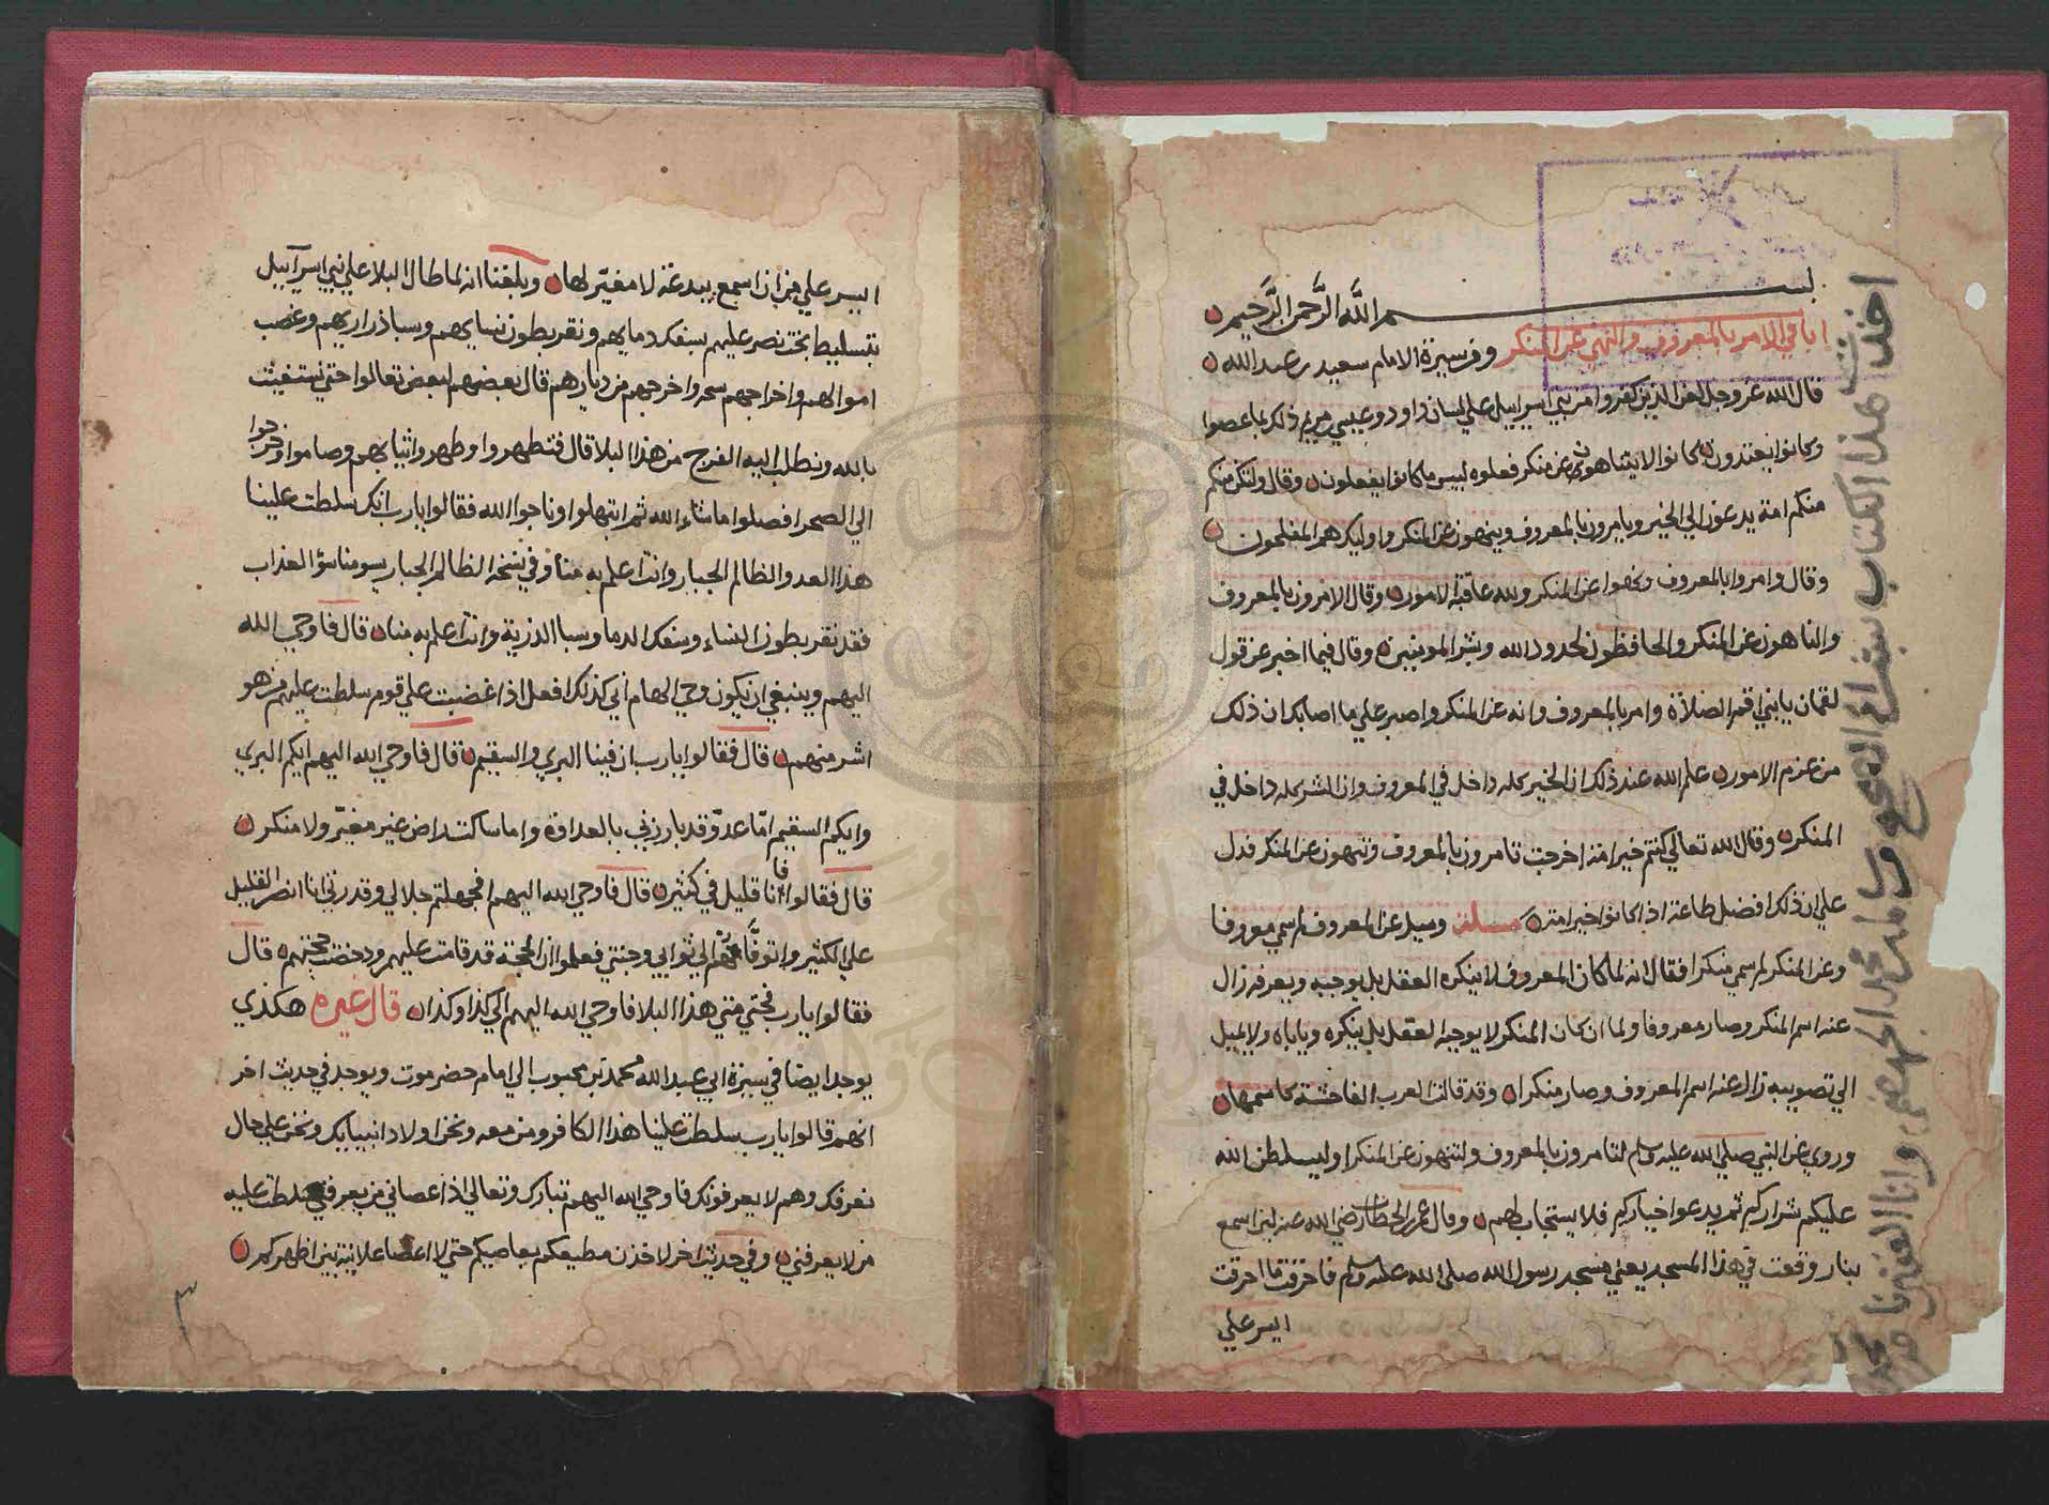 بسم الله الرحمن الرحيم
بابا في الامر بالمعروف والنهي عن المنكر وفي سيرة الامام سعيد بن عبدالله
قال الله عز وجل لعن الذين كفروا من بني اسراييل علي لسان داود وعيسي مريم ذلك بما عصوا
وكانوا يعتدون كانوا لا يتناهون عن منكر فعلوه لبيس ما كانوا يفعلون وقال ولتكن منكم
منكم امة يدعون الي الخير ويامرون بالمعروف وينهون عن المنكر واوليك هم المفلحون
وقال وامروا بالمعروف ونهوا عن المنكر ولله عاقبة الامور وقال الامرون بالمعروف
والناهون عن المنكر والحافظون لحدود الله وبشر المومنين وقال فيما اخبر عن قول
لقمان يا بني اقم الصلاة وامر بالمعروف وانه عن المنكر واصبر علي ما اصابك ان ذلك
من عزم الامور علم الله عند ذلك ان الخير كله داخل في المعروف وان الشر كله داخل في
المنكر وقال الله تعالي كنتم خير امة اخرجت تامرون بالمعروف وتنهون عن المنكر فدل
علي ان ذلك افضل طاعة اذا كانوا خير امة مسلة وسيل عن المعروف لم سمي معروفا
وعن المنكر لم سمي منكرا فقال لانه لما كان المعروف لا ينكره العقل بل يوجبه ويعرفه زال
عنه اسم المنكر وصار معروفا ولما ان كان المنكر لا يوجبه العقل بل ينكره وياباه ولا يميل
الي تصويبه زال عنه اسم المعروف وصار منكرا وقد قالت العرب الفاحشة كاسمها
وروي عن النبي صلي الله عليه وسلم لتامرون بالمعروف ولتنهون عن المنكر او ليسلطن الله
عليكم شراركم ثم يدعوا خياركم فلا يستجاب لهم وقال عمر بن الخطاب رضي الله عنه لين اسمع
بنار وقعت في هذا المسجد يعني مسجد رسول الله صلي الله عليه وسلم فاحرقت ما احرقت
ايسر علي
هذا الكتاب
ايسر علي من ان اسمع ببدعة لا مغير لها وبلغنا انه لما طال البلا علي بني اسراييل
بتسليط بخت نصر عليهم بسفك دمايهم ونقر بطون نسايهم وسبا ذراريهم وغصب
اموالهم واخراجهم واخرجهم من ديارهم قال بعضهم لبعض تعالوا حتي نستغيث
بالله ونطلب اليه الفرج من هذا البلا قال فتطهروا وطهروا ثيابهم وصاموا وخرجوا
الي الصحرا فصلوا ما شاء الله ثم ابتهلوا وناجوا الله فقالوا يا رب انك سلطت علينا
هذا العدو الظالم الجبار وانت اعلم به منا وفي نسخه الظالم الجبار يسومنا سؤ العذاب
فقد نقر بطون النساء وسفك الدما وسبا الذرية وانت اعلم به منا قال فاوحي الله
اليهم وينبغي ان يكون وحي الهام اني كذلك افعل اذا غضبت علي قوم سلطت عليهم من هو
اشر منهم قال فقالوا يا رب ان فينا البري والسقيم قال فاوحي الله اليهم ايكم البري
وايكم السقيم اما عدو قد بارزني بالعداوة واما ساكت راض غير مغير ولا منكر
قال فقالوا فانا قليل في كثير قال فاوحي الله اليهم افجهلتم جلالي وقدرتي انا انصر القليل
علي الكثير واتوفاهم الي ثوابي وجنتي فعلموا ان الحجة قد قامت عليهم ودحضت حجتهم قال
فقالوا يا رب فحتي متي هذا البلا فاوحي الله اليهم الي كذا وكذا قال غيره هكذي
يوجد ايضا في سيرة ابي عبد الله محمد بن محبوب الي امام حضرموت ويوجد في حديث اخر
انهم قالوا يا رب سلطت علينا هذا الكافر ومن معه ونحن اولاد انبيايك ونحن علي حال
نعرفك وهم لا يعرفونك فاوحي الله اليهم تبارك وتعالي اذا عصاني من يعرفني سلطت عليه
من لا يعرفني وفي حديث اخر لاخذن مطيعكم بعاصيكم حتي لا اعصا علانية بين اظهركم
٣